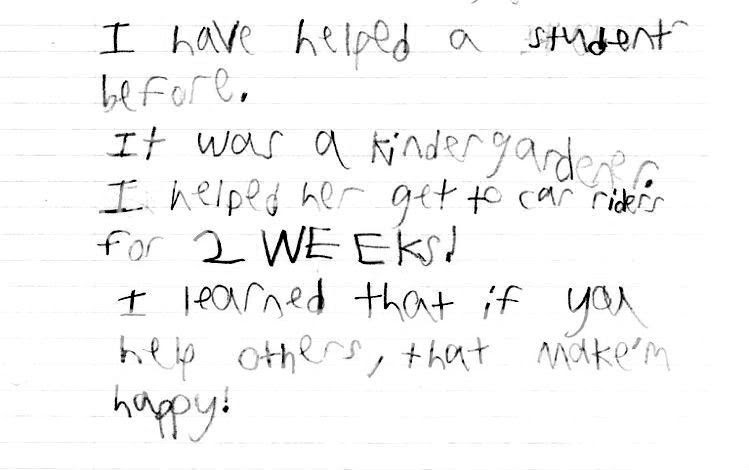 I have helped a student
before.
It was a kindergardener.
I helped her get to car riders
for 2 WEEKS!
I learned that if you
help others, that make'm
happy!